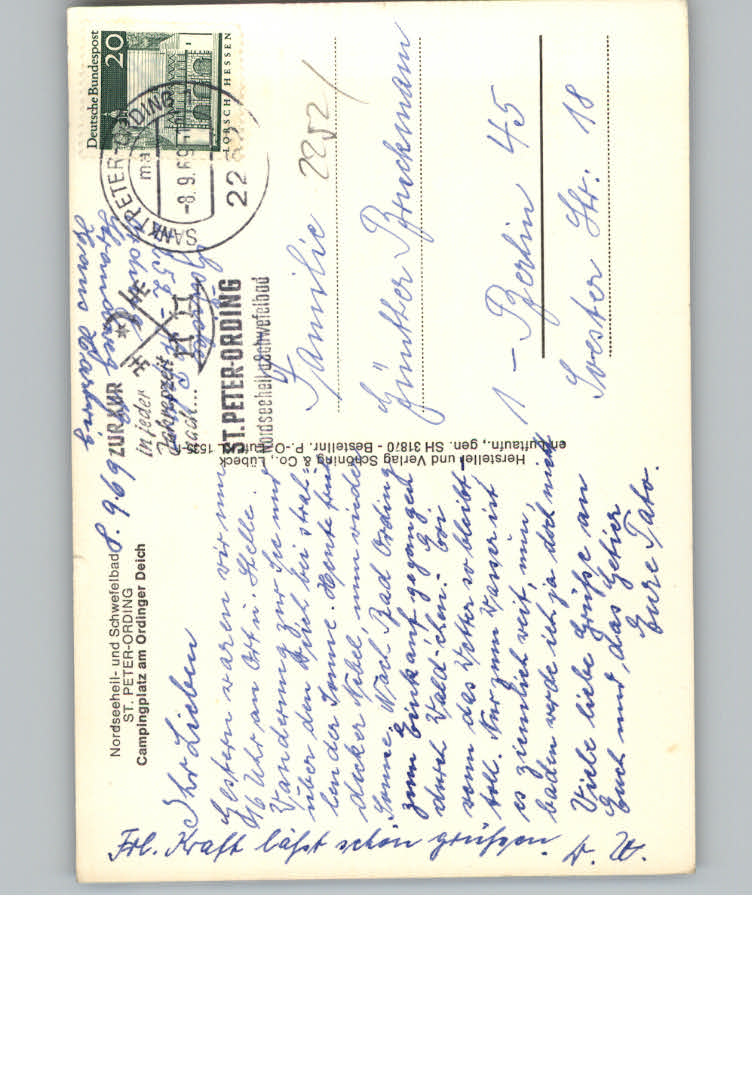 Nordseeheil- und Schwefelbad
ST. PETER-ORDING
Campingplatz am Ordinger Deich
8. 9. 69
Ihr Lieben
Gestern waren wir um
1/2 6 Uhr an Ort u. Stelle.
Wanderung zur See und
über den Deich bei strah-
lender Sonne. Heute früh
dicker Nebel nun wieder
Sonne. Nach Bad Ording
zum Einkauf gegangen
durch Wald-chen.
wenn das Wetter so bleibt
toll. Nur zum Wasser ist
es ziemlich weit, nun,
baden werde ich ja doch nicht
Viele liebe Grüße an
Euch und das Getier
Eure Tato.
Frl. Kraft läßt schön grüßen. D. W.
Hersteller und Verlag Schöning & Co., Lübeck
en Luftaufn., gen. SH 31870 - Bestellnr. P.-O.
Deutsche Bundespost
20
LORSCH HESSEN
SANKT PETER-ORDING
-8.9.69
22
ZUR KUR
in jeder
Jahreszeit
nach...
ST. PETER-ORDING
Nordseeheil- u. Schwefelbad
Haus
2252
Familie
Günther Bruckmann
1 - Berlin 45
Soester Str. 18